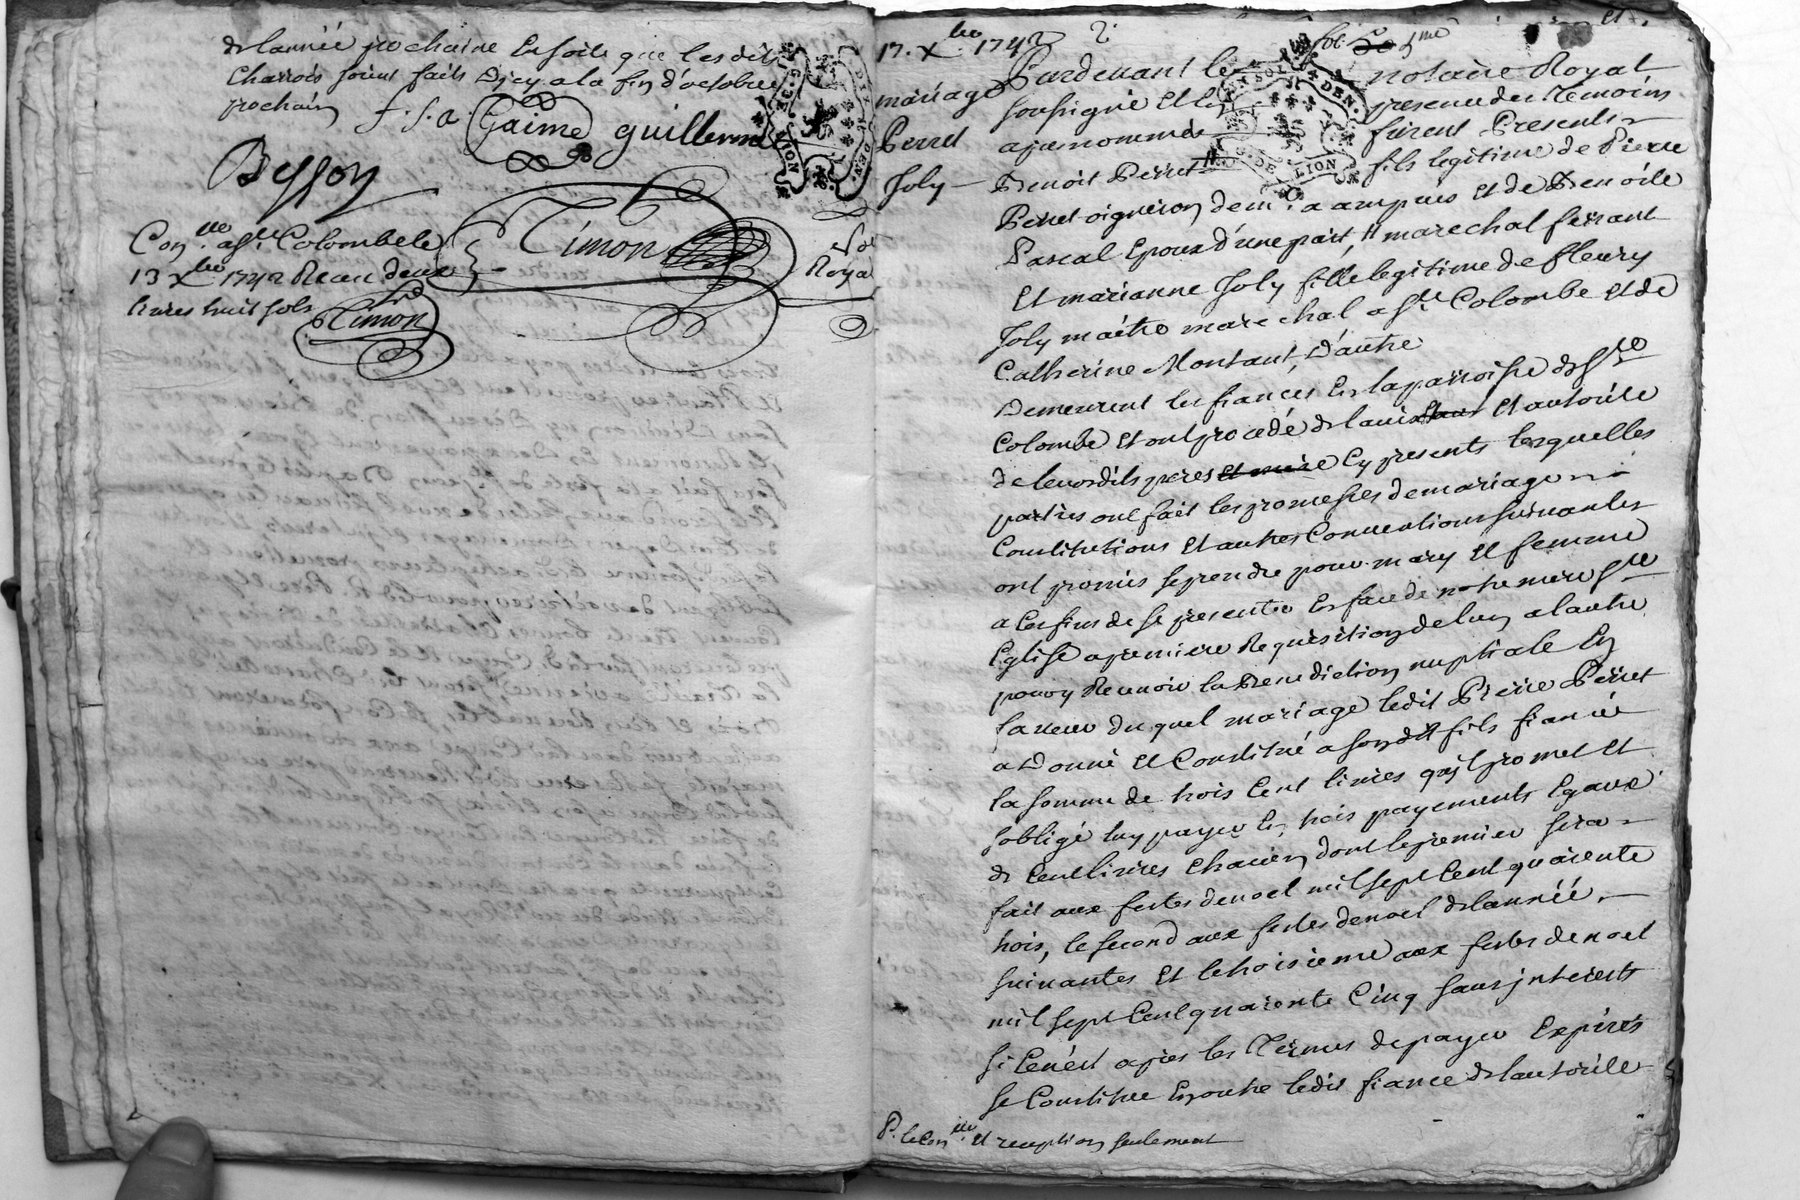 de lannée prochaine En sorte que les dits
Charrois soient faits D'icy a la fin d'octobre
prochain f. s. a Gaime guillerme
Besson
Con.lle a St.e Colombe le
13 Xbre 1742 Reçu deux
livres huit sols
Timon
Timon
No.re
Royal
17. Xbre 1742
mariage
Perret
Joly
Pardevant le notaire Royal
soussigné Et En presence des Temoins
apres nommés furent Presents
Benoit Perret fils legitime de Pierre
Perret vigneron dem.t a ampuis et de Benoite
Pascal Epoux d'une part, marechal ferrant
Et marianne Joly fille legitime de fleury
Joly maitre marechal a St.e Colombe et de
Catherine Montant, D'autre
Demeurent les fiancés En la parroisse de Ste
Colombe Et ont procedé de lavis Et autorité
de leurs dits peres et mere Cy presents lesquelles
parties ont fait les promesses de mariage
Constitutions Et autres Conventions suivantes
ont promis se prendre pour mary et femme
a Ces fins de se presenter En face de notre mere Ste
Eglise a premiere Requisition de lun a lautre
pour y Recevoir la Benediction nuptiale En
faveur duquel mariage ledit Pierre Perret
a Donné et Constitué a son dit fils fiancé
la somme de trois Cent livres qu'il promet et
s'oblige luy payer En trois payements Egaux
de Cent livres Chacun dont le premier sera
fait aux festes de noel mil sept Cent quarente
trois, le second aux festes de noel de lannée
suivantes et le troisieme aux festes de noel
mil sept Cent quarente Cinq sans interests
si Ce n'est apres les Termes de payer Expirés
se Constitue En outre ledit fiancé de lautorité
P. le Con.lle et reception seulement